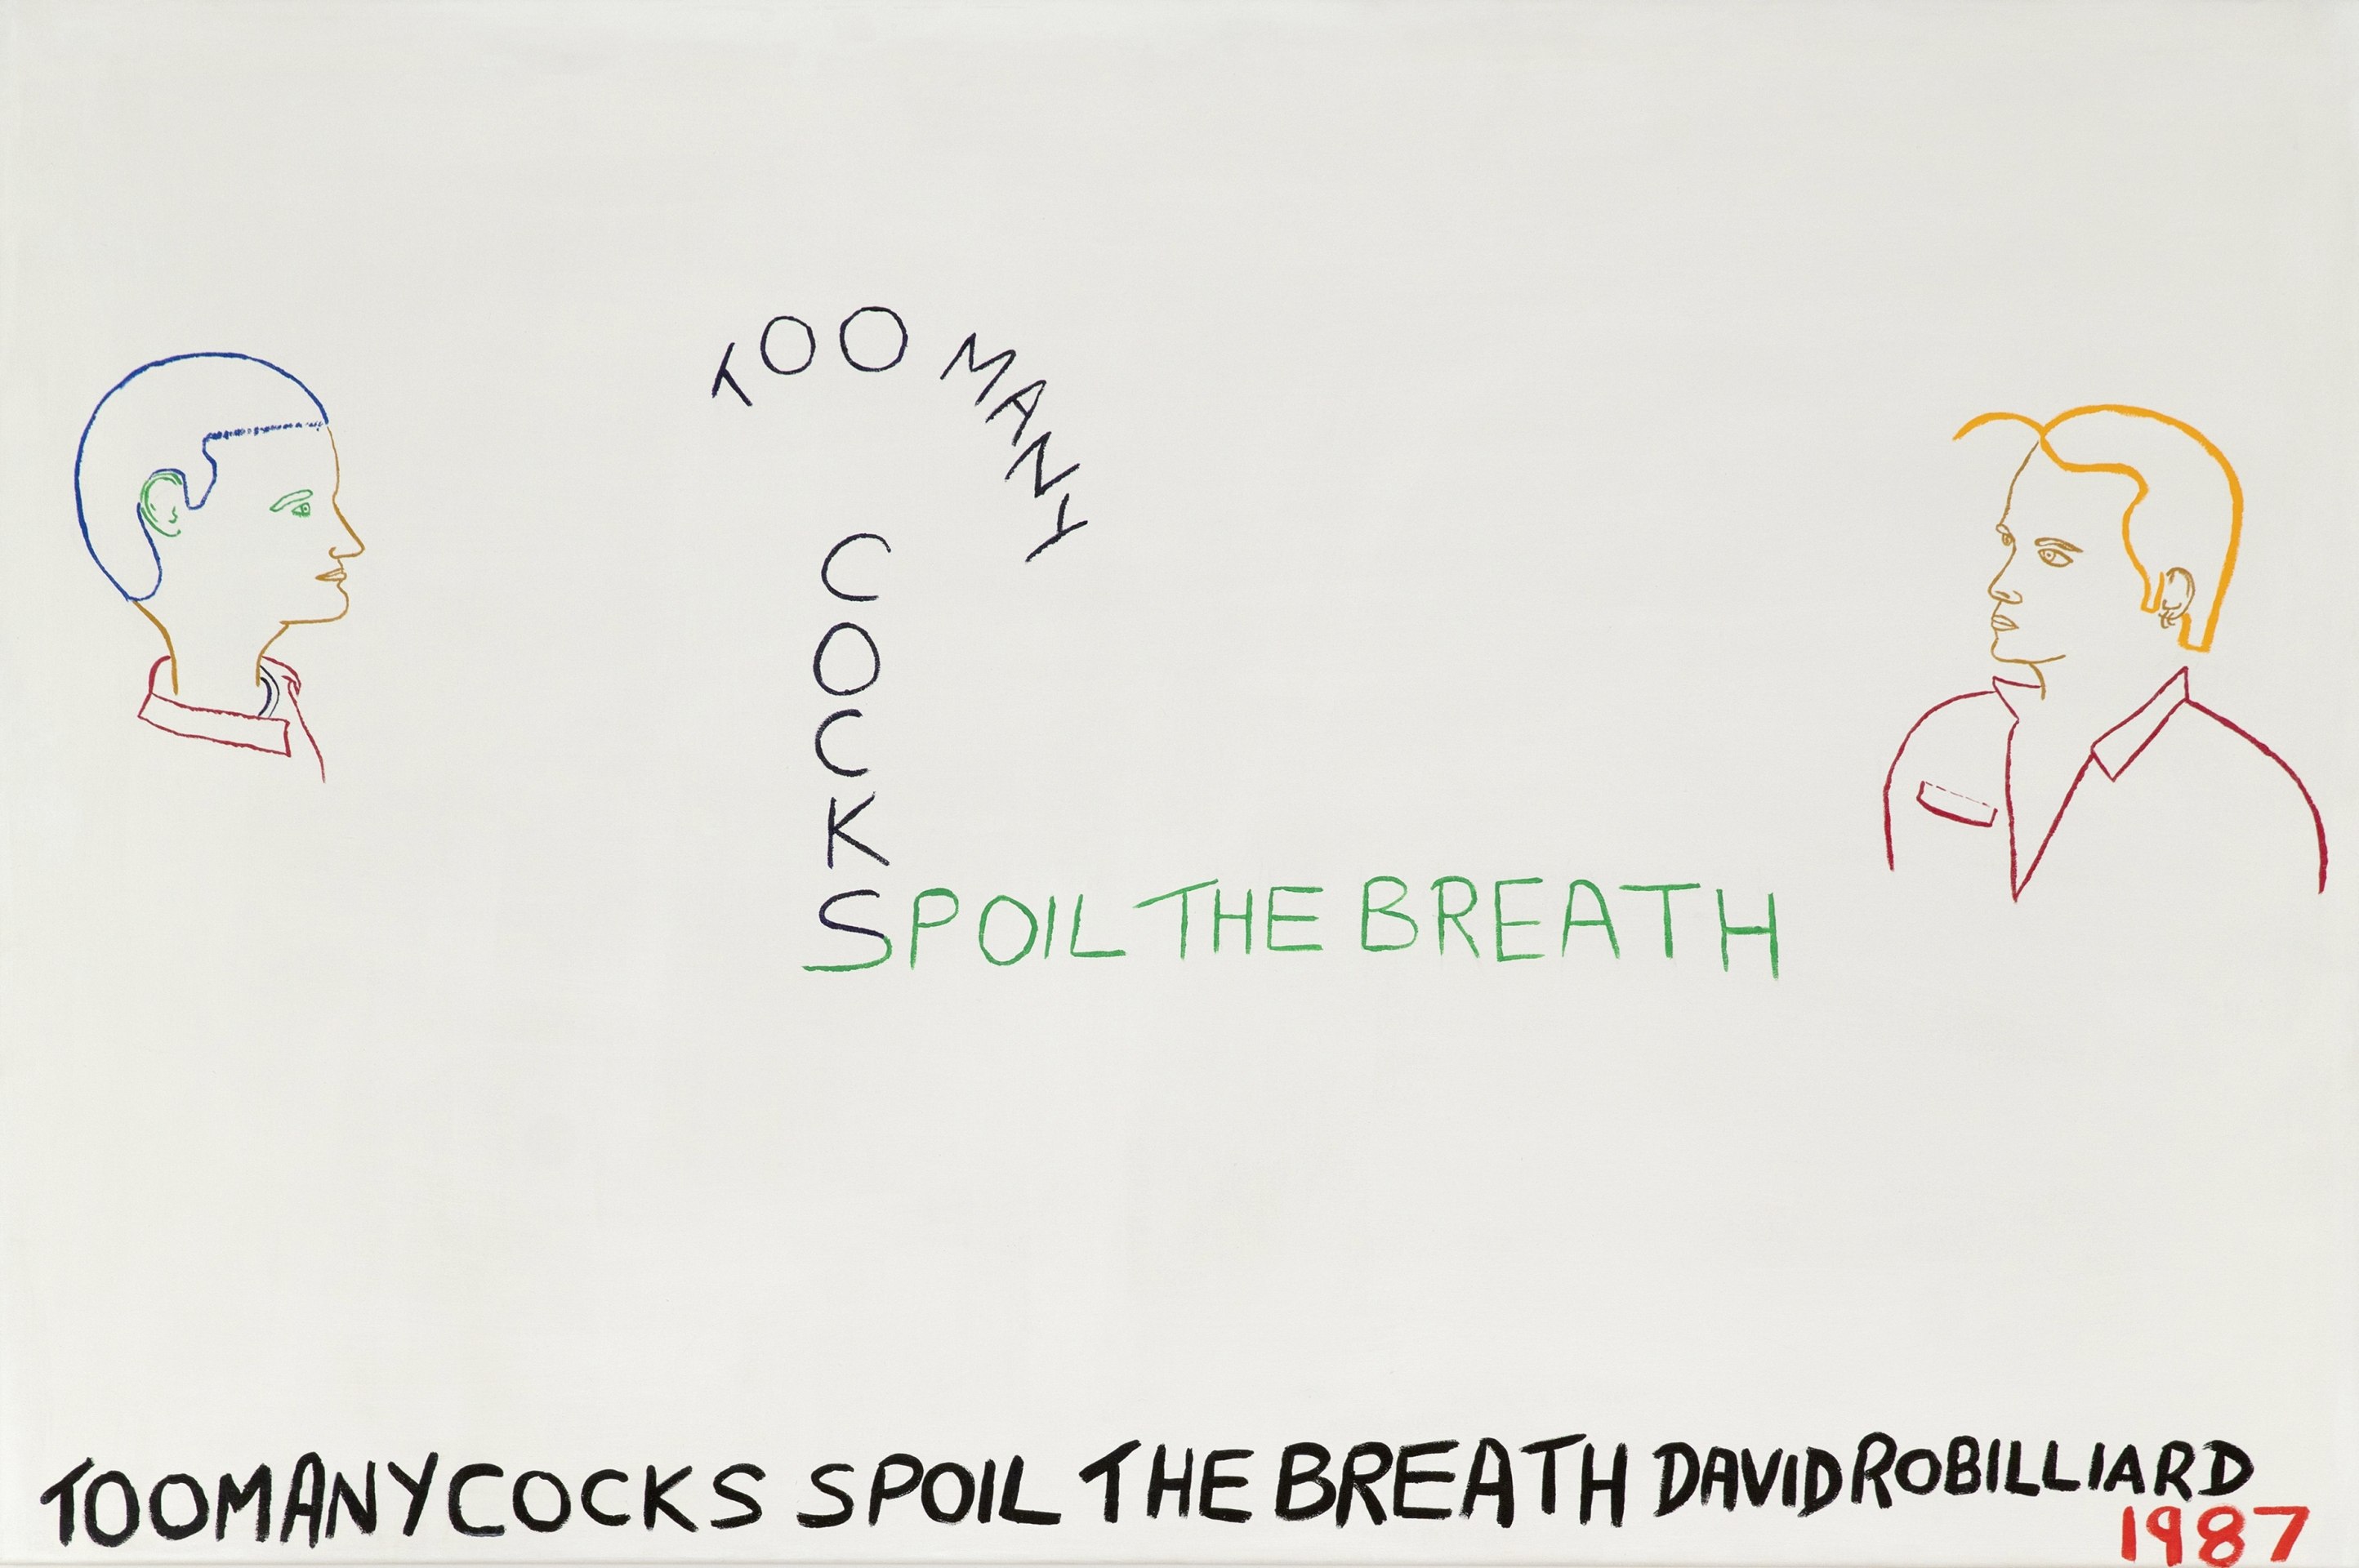 TOO MANY
COCKS
SPOIL THE BREATH
TOO MANY COCKS SPOIL THE BREATH DAVID ROBILLIARD
1987